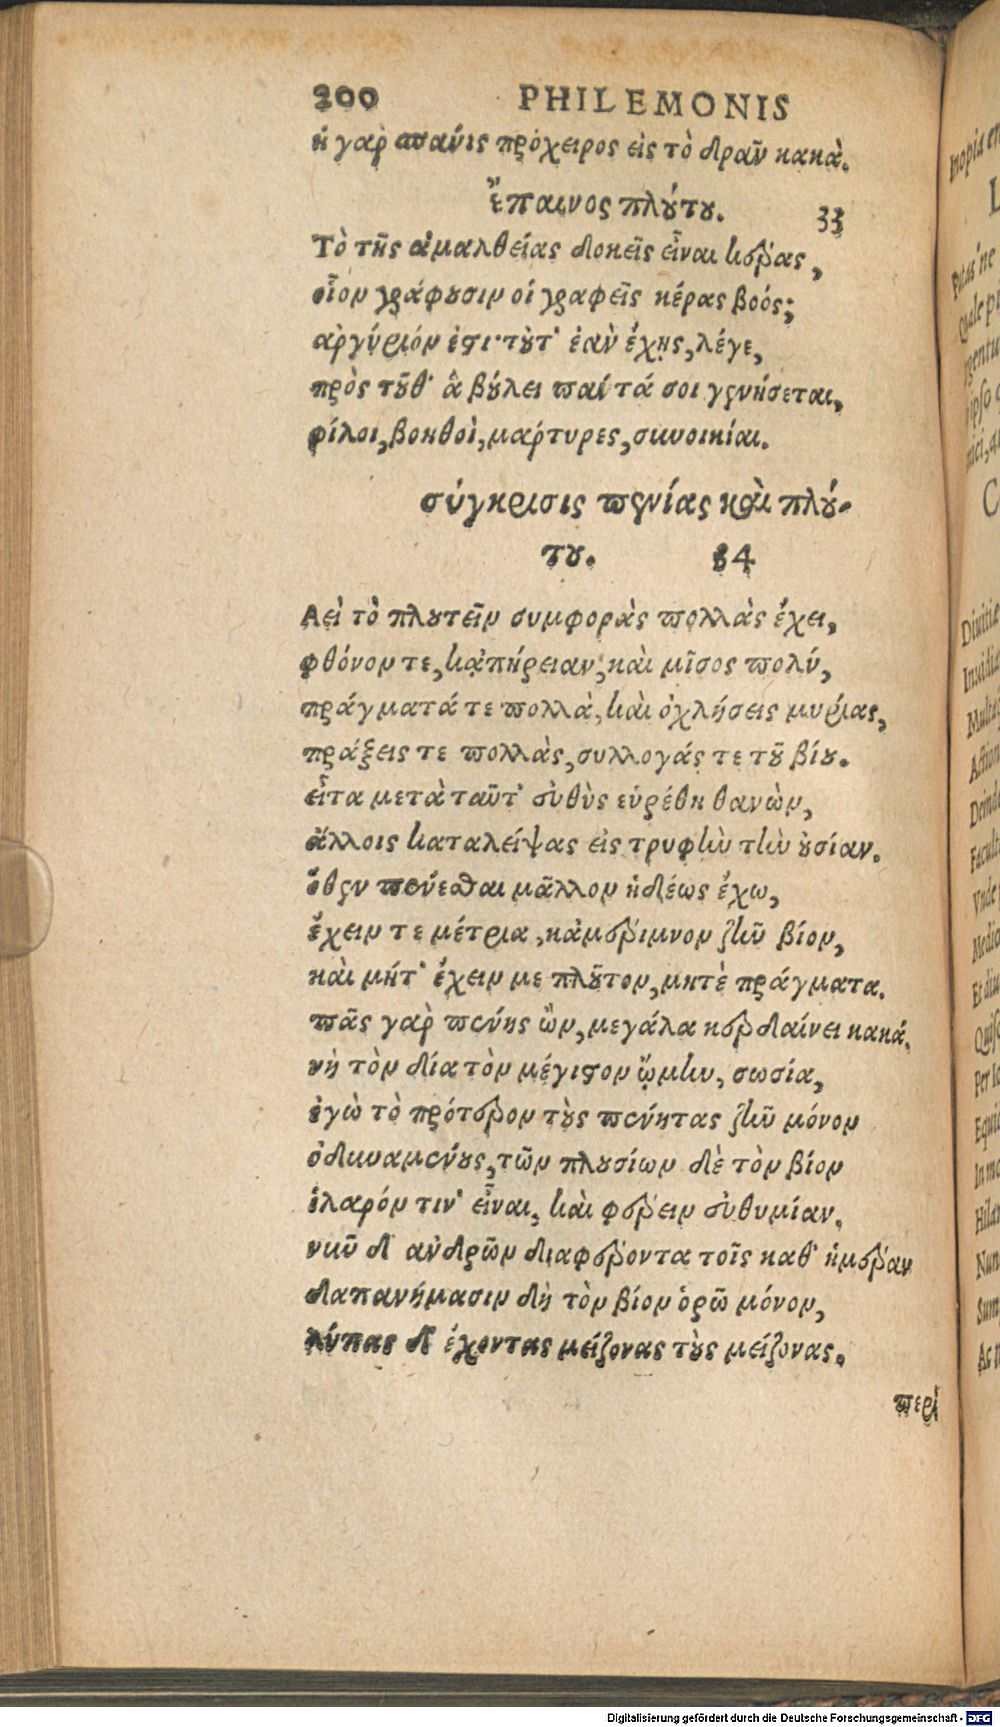 200 PHILEMONIS
ἡ γὰρ σπάνις πρόχειρος εἰς τὸ δρᾶν κακὰ.
ἔπαινος πλούτου. 33
Τὸ τῆς ἀμαλθείας δοκεῖς εἶναι κέρας,
οἷον γράφουσιν οἱ γραφεῖς κέρας βοός;
ἀργύριόν ἐστι· τοῦτ' ἐὰν ἔχῃς, λέγε,
πρὸς τοῦθ' ἃ βούλει πάντά σοι γενήσεται,
φίλοι, βοηθοὶ, μάρτυρες, συνοικίαι.
σύγκρισις πενίας καὶ πλού-
του. 34
Αεὶ τὸ πλουτεῖν συμφορὰς πολλὰς ἔχει,
φθόνον τε, κἀπήρειαν, καὶ μῖσος πολύ,
πράγματά τε πολλὰ, καὶ ὀχλήσεις μυρίας,
πράξεις τε πολλὰς, συλλογάς τε τοῦ βίου.
εἶτα μετὰ ταῦτ' εὐθὺς εὑρέθη θανὼν,
ἄλλοις καταλείψας εἰς τρυφὴν τὴν οὐσίαν.
ὅθεν πένεσθαι μᾶλλον ἡδέως ἔχω,
ἔχειν τε μέτρια, κἀμέριμνον ζῆν βίον,
καὶ μήτ' ἔχειν με πλοῦτον, μητὲ πράγματα.
πᾶς γὰρ πένης ὢν, μεγάλα κερδαίνει κακά.
νὴ τὸν δία τὸν μέγιστον ᾤμην, σωσία,
ἐγὼ τὸ πρότερον τοὺς πένητας ζῆν μόνον
ὀδυναμένους, τῶν πλουσίων δὲ τὸν βίον
ἱλαρόν τιν' εἶναι, καὶ φέρειν εὐθυμίαν.
νῦν δ' ἀνδρῶν διαφέροντα τοῖς καθ' ἡμέραν
δαπανήμασιν δὴ τὸν βίον ὁρῶ μόνον,
λύπας δ' ἔχοντας μείζονας τοὺς μείζονας.
περὶ
Digitalisierung gefördert durch die Deutsche Forschungsgemeinschaft - DFG